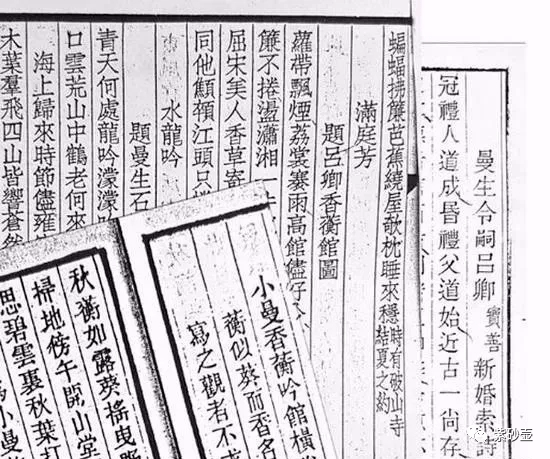 曼生令嗣呂卿寶善新婚索詩
冠禮人道成昏禮父道始近古一尚存
蝙蝠拂簾芭蕉繞屋欹枕睡來穩時有破山寺結夏之約
滿庭芳
題呂卿香蘅館圖
蘿帶飄煙荔裳褰雨高館儘仔
簾不捲盪瀟湘一
屈宋美人香草寄
同他顦顇江頭只
水龍吟
題曼生石
青天何處龍吟濛濛
口雲荒山中鶴老何來
海上歸來時節儘雍
木葉羣飛四山皆響蒼然
小曼香蘅吟館橫
蘅似葵而香名
寫之觀者不求
秋蘅如露葵搖曳
掃地傍午開山堂
思碧雲裏秋葉打
小曼
紫砂壺